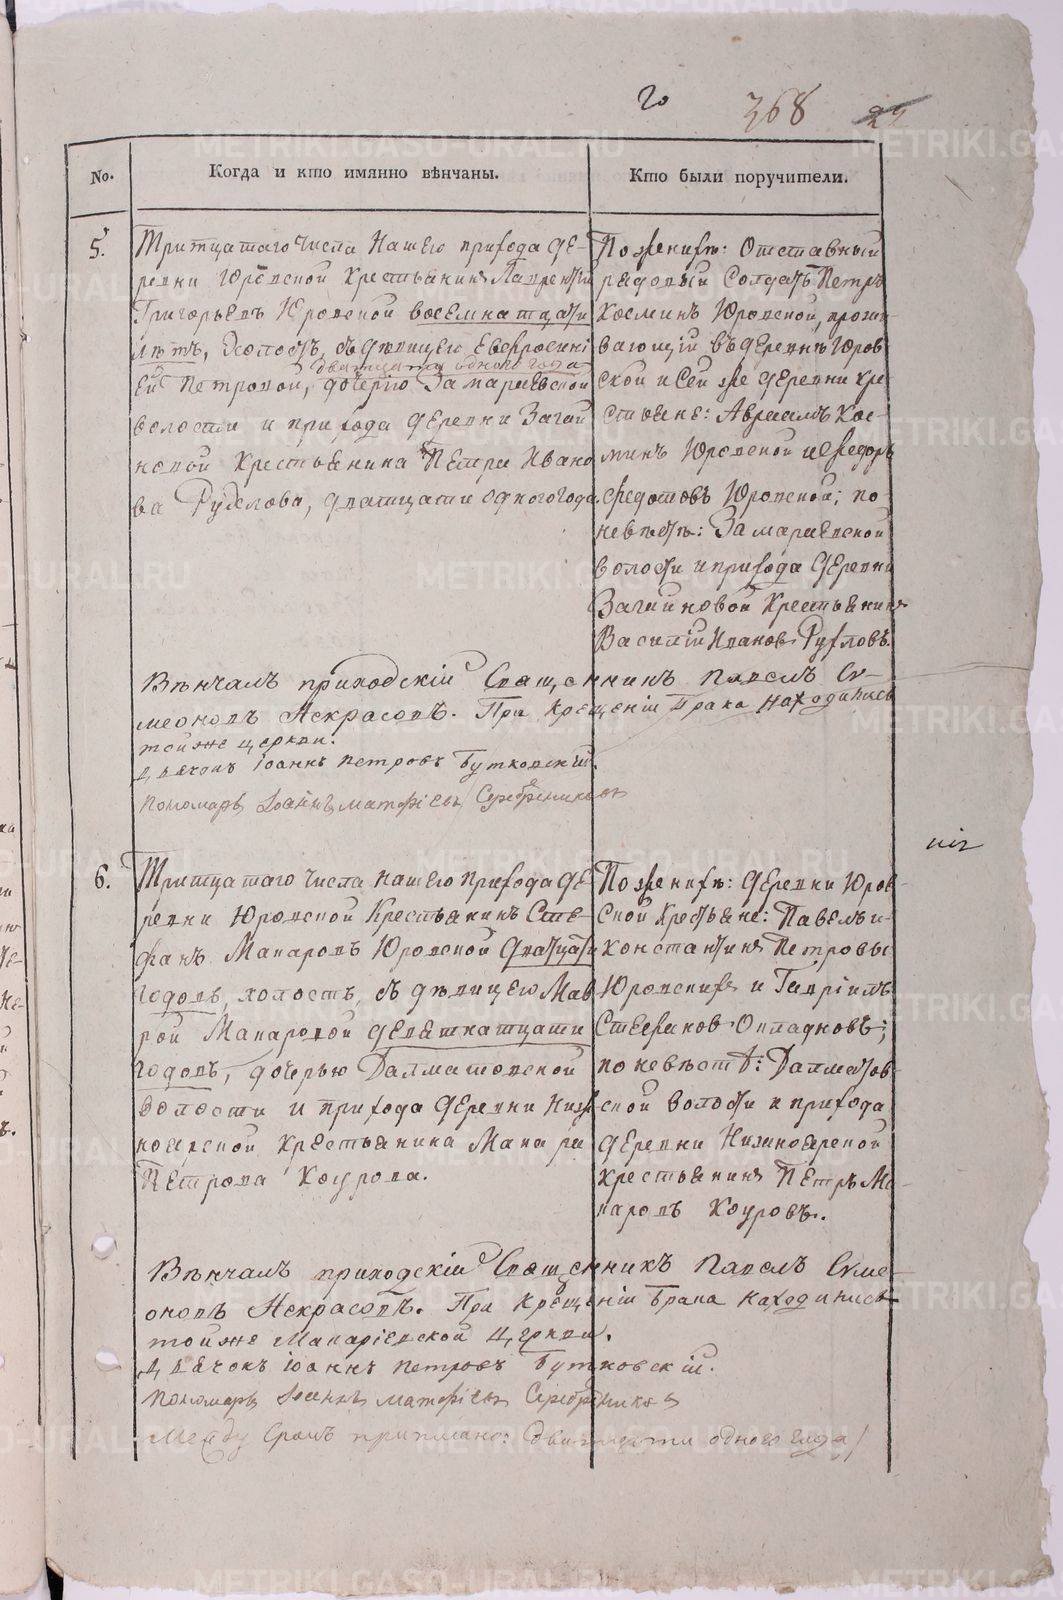 го 368 29
No. Когда и кто имянно вѣнчаны. Кто были поручители.
5. Тритцатаго Числа Нашего прихода Де-
ревни Юровской Крестьянинъ Лаврентій
Григорьевъ Юровской восемнатцати
лѣтъ, Холостъ, съ дѣвицею Евфросині
дватцати одного года
ей Петровой, дочерію Замараевской
волости и прихода деревни Загай
новой Крестьянина Петра Ивано
ва Рухлова, дватцати одного года.
По женихѣ: Отставный
рядовый Солдатъ Петръ
Косминъ Юровской, прожи-
вающій въ деревнѣ Юров
ской и Сей же деревни кре
стьяне: Авраамъ Кос-
минъ Юровской и Федоръ
Федотовъ Юровской; по
невѣстѣ: Замараевской
волости и прихода деревни
Загайновой Крестьянинъ
Василій Ивановъ Рухловъ.
Вѣнчалъ приходскій Священникъ Павелъ Си-
меоновъ Некрасовъ. При Крещеніи Брака находились
той же церкви.
Дьячокъ Іоаннъ Петровъ Бутковскій.
Пономарь Іоаннъ Матфіевъ Серебрениковъ
6. Тритцатаго Числа нашего прихода де
ревни Юровской Крестьянинъ Сте-
фанъ Макаровъ Юровской дватцати
годовъ, холостъ, съ дѣвицею Мав
рой Макаровой девятнатцати
годовъ, дочерью Далматовской
волости и прихода деревни Ниж
ноярской Крестьянина Макара
Петрова Коурова.
По женихѣ: деревни Юров-
ской Крестьяне: Павелъ и
Константинъ Петровы
Юровскихъ и Гавріилъ
Стефановъ Опладновъ;
по невѣстѣ: Далматов-
ской волости и прихода
деревни Нижноярской
крестьянинъ Петръ Ма-
каровъ Коуровъ.
Вѣнчалъ приходскій Священникъ Павелъ Симе-
оновъ Некрасовъ. При Крещеніи Брака находились
той же Макаріевской Церкви.
Дьячокъ Іоаннъ Петровъ Бутковскій.
Пономарь Іоаннъ Матфіевъ Серебрениковъ
Между Строкъ приписано: дватцати одного года